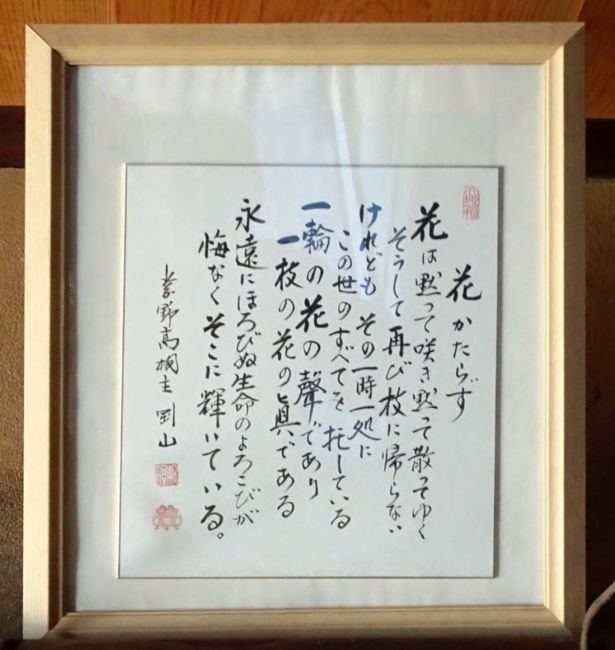 花かたらず
花は黙って咲き黙って散ってゆく
そうして再び枝に帰らない
けれども その一時一処に
この世のすべてを托している
一輪の花の聲であり
一枝の花の眞である
永遠にほろびぬ生命のよろこびが
悔なくそこに輝いている。
高桐主 剛山